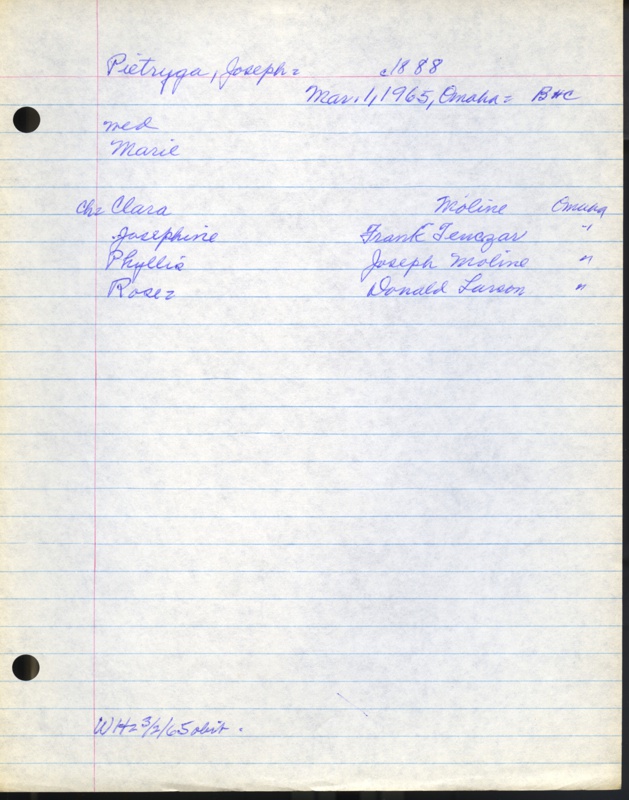 Pietryga, Joseph= c1888
Mar. 1, 1965, Omaha= B#C
med
Marie
ch= Clara Moline Omaha
Josephine Frank Tenczar "
Phyllis Joseph Moline "
Rose= Donald Larson "
WH= 3/2/65 obit.